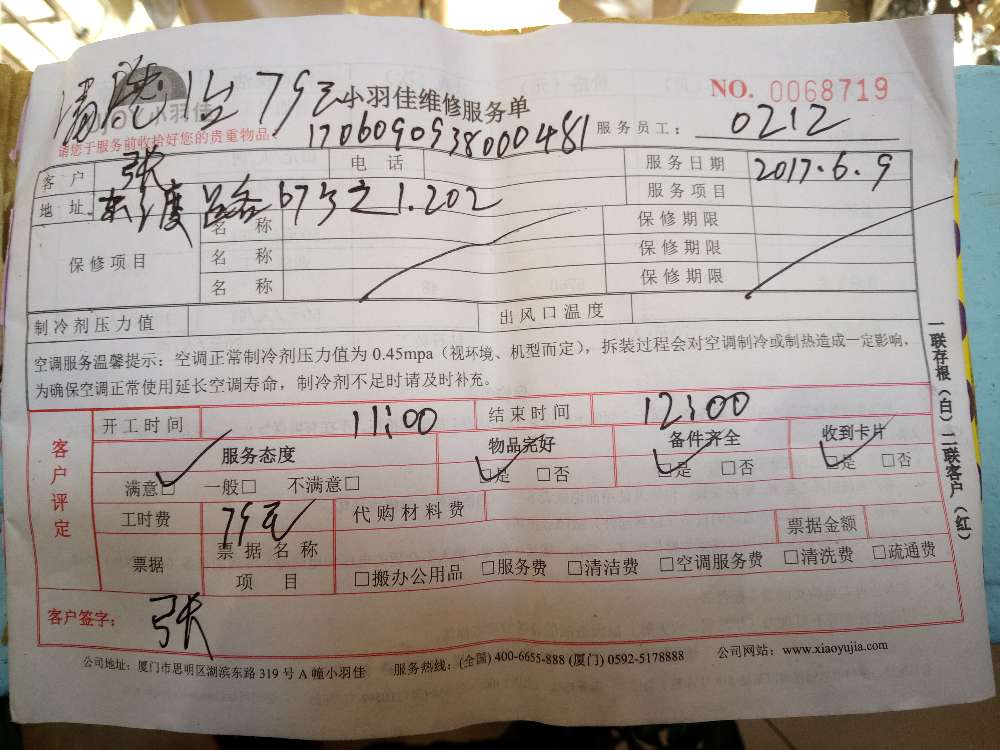 清洗1台79元 小羽佳维修服务单 NO. 0068719
小羽佳
请您于服务前收拾好您的贵重物品
17060909380000481 服务员工： 0212
客户 张 电话 服务日期 2017.6.9
地址 67号之1.202 服务项目
保修项目 名称 保修期限
名称 保修期限
名称 保修期限
制冷剂压力值 出风口温度
空调服务温馨提示：空调正常制冷剂压力值为 0.45mpa（视环境、机型而定），拆装过程会对空调制冷或制热造成一定影响，
为确保空调正常使用延长空调寿命，制冷剂不足时请及时补充。
客户评定
开工时间 11:00 结束时间 12:00
服务态度 物品完好 备件齐全 收到卡片
满意□ 一般□ 不满意□ □是 □否 □是 □否 □是 □否
工时费 79元 代购材料费
票据 票据名称 票据金额
项目 □搬办公用品 □服务费 □清洁费 □空调服务费 □清洗费 □疏通费
客户签字： 张
公司地址：厦门市思明区湖滨东路 319 号 A 幢小羽佳 服务热线：(全国) 400-6655-888 (厦门) 0592-5178888 公司网站：www.xiaoyujia.com
一联存根（白）二联客户（红）